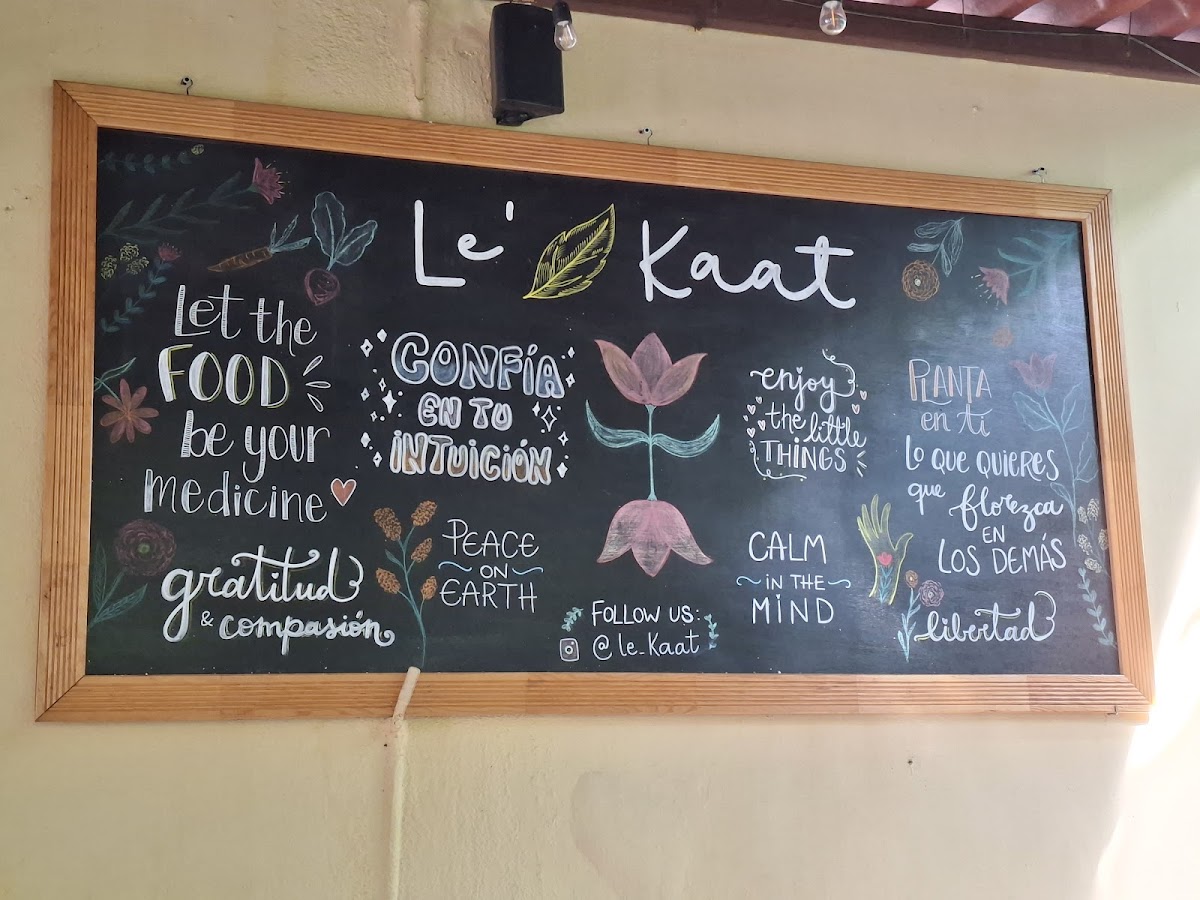 Le' Kaat
Let the
FOOD
be your
medicine
CONFÍA
EN TU
INTUICIÓN
enjoy
the little
THINGS
PLANTA
en ti
LO QUE QUIERES
que florezca
EN
LOS DEMÁS
gratitud
& compasión
PEACE
ON
EARTH
FOLLOW US:
@le_Kaat
CALM
IN THE
MIND
libertad